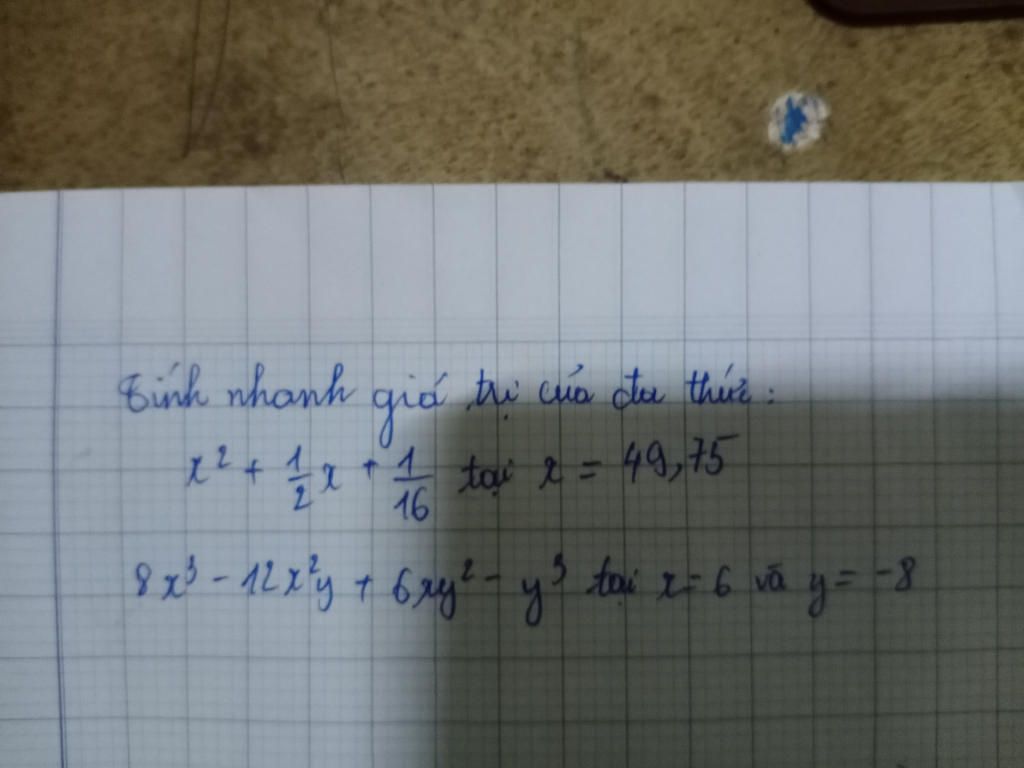 Tính nhanh giá trị của đa thức:
x² + 1/2 x + 1/16 tại x = 49,75
8x³ - 12x²y + 6xy² - y³ tại x = 6 và y = -8